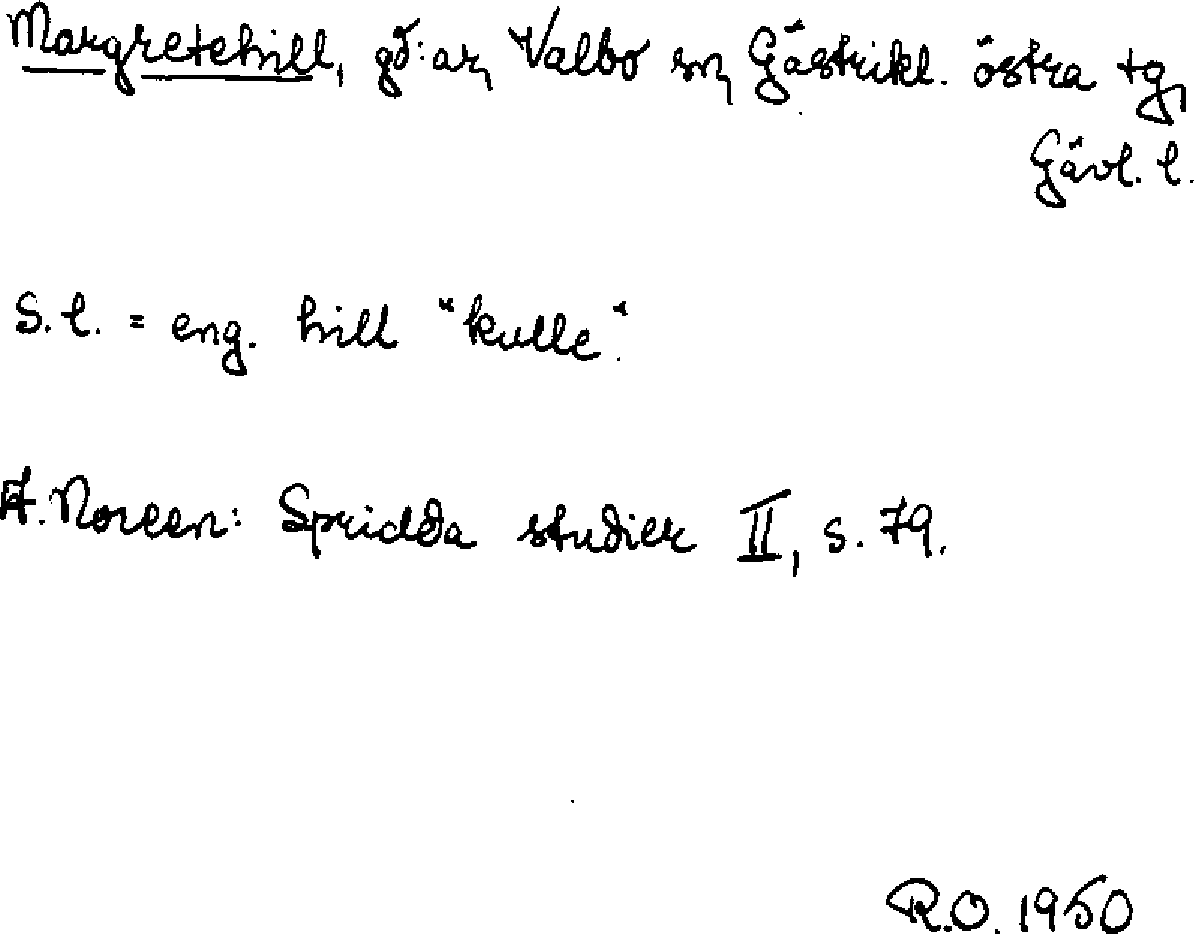 Margretehill, gd:ar, Valbo sn, Gästrikl. östra tg,
Gävl. l.
S.l. = eng. hill "kulle".
A. Noreen: Spridda studier II, s. 79.
R.O. 1950